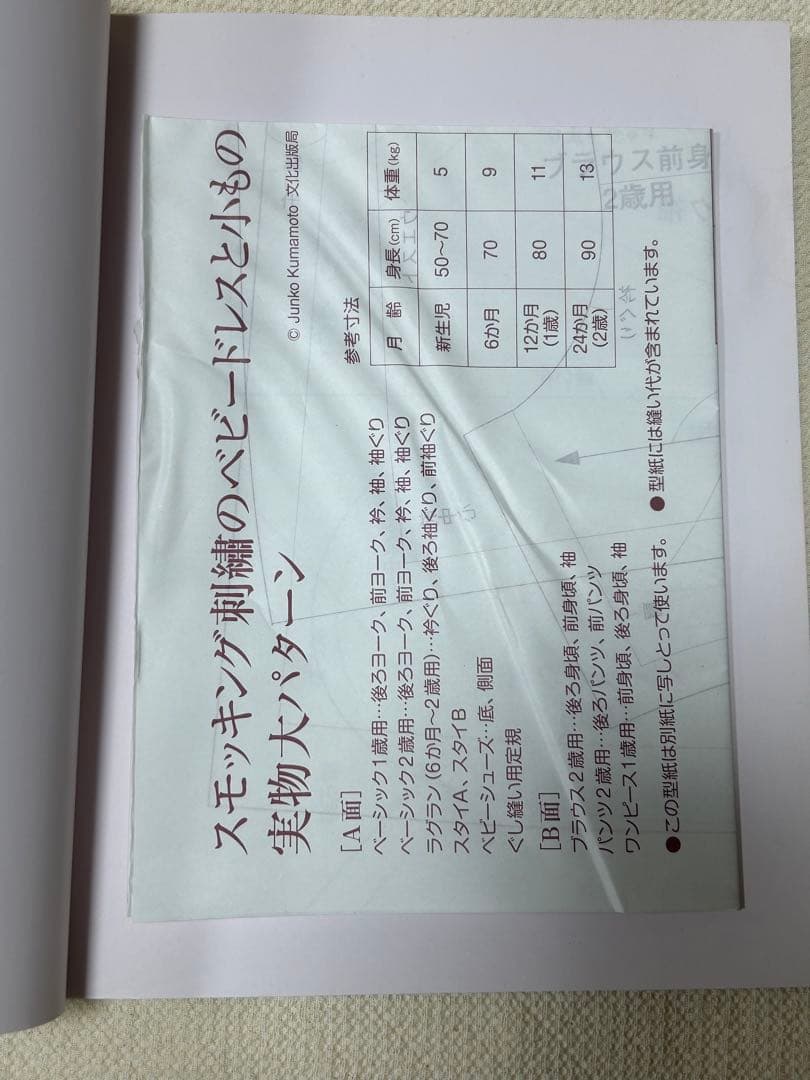 スモッキング刺繍のベビードレスと小もの
実物大パターン
© Junko Kumamoto 文化出版局
[A面]
ベーシック1歳用…後ろヨーク、前ヨーク、衿、袖、袖ぐり
ベーシック2歳用…後ろヨーク、前ヨーク、衿、袖、袖ぐり
ラグラン(6か月〜2歳用)…衿ぐり、後ろ袖ぐり、前袖ぐり
スタイA、スタイB
ベビーシューズ…底、側面
ぐし縫い用定規
[B面]
ブラウス2歳用…後ろ身頃、前身頃、袖
パンツ2歳用…後ろパンツ、前パンツ
ワンピース1歳用…前身頃、後ろ身頃、袖
参考寸法
月齢 身長(cm) 体重(kg)
新生児 50〜70 5
6か月 70 9
12か月(1歳) 80 11
24か月(2歳) 90 13
●この型紙は別紙に写しとって使います。 ●型紙には縫い代が含まれています。
ブラウス前身
2歳用